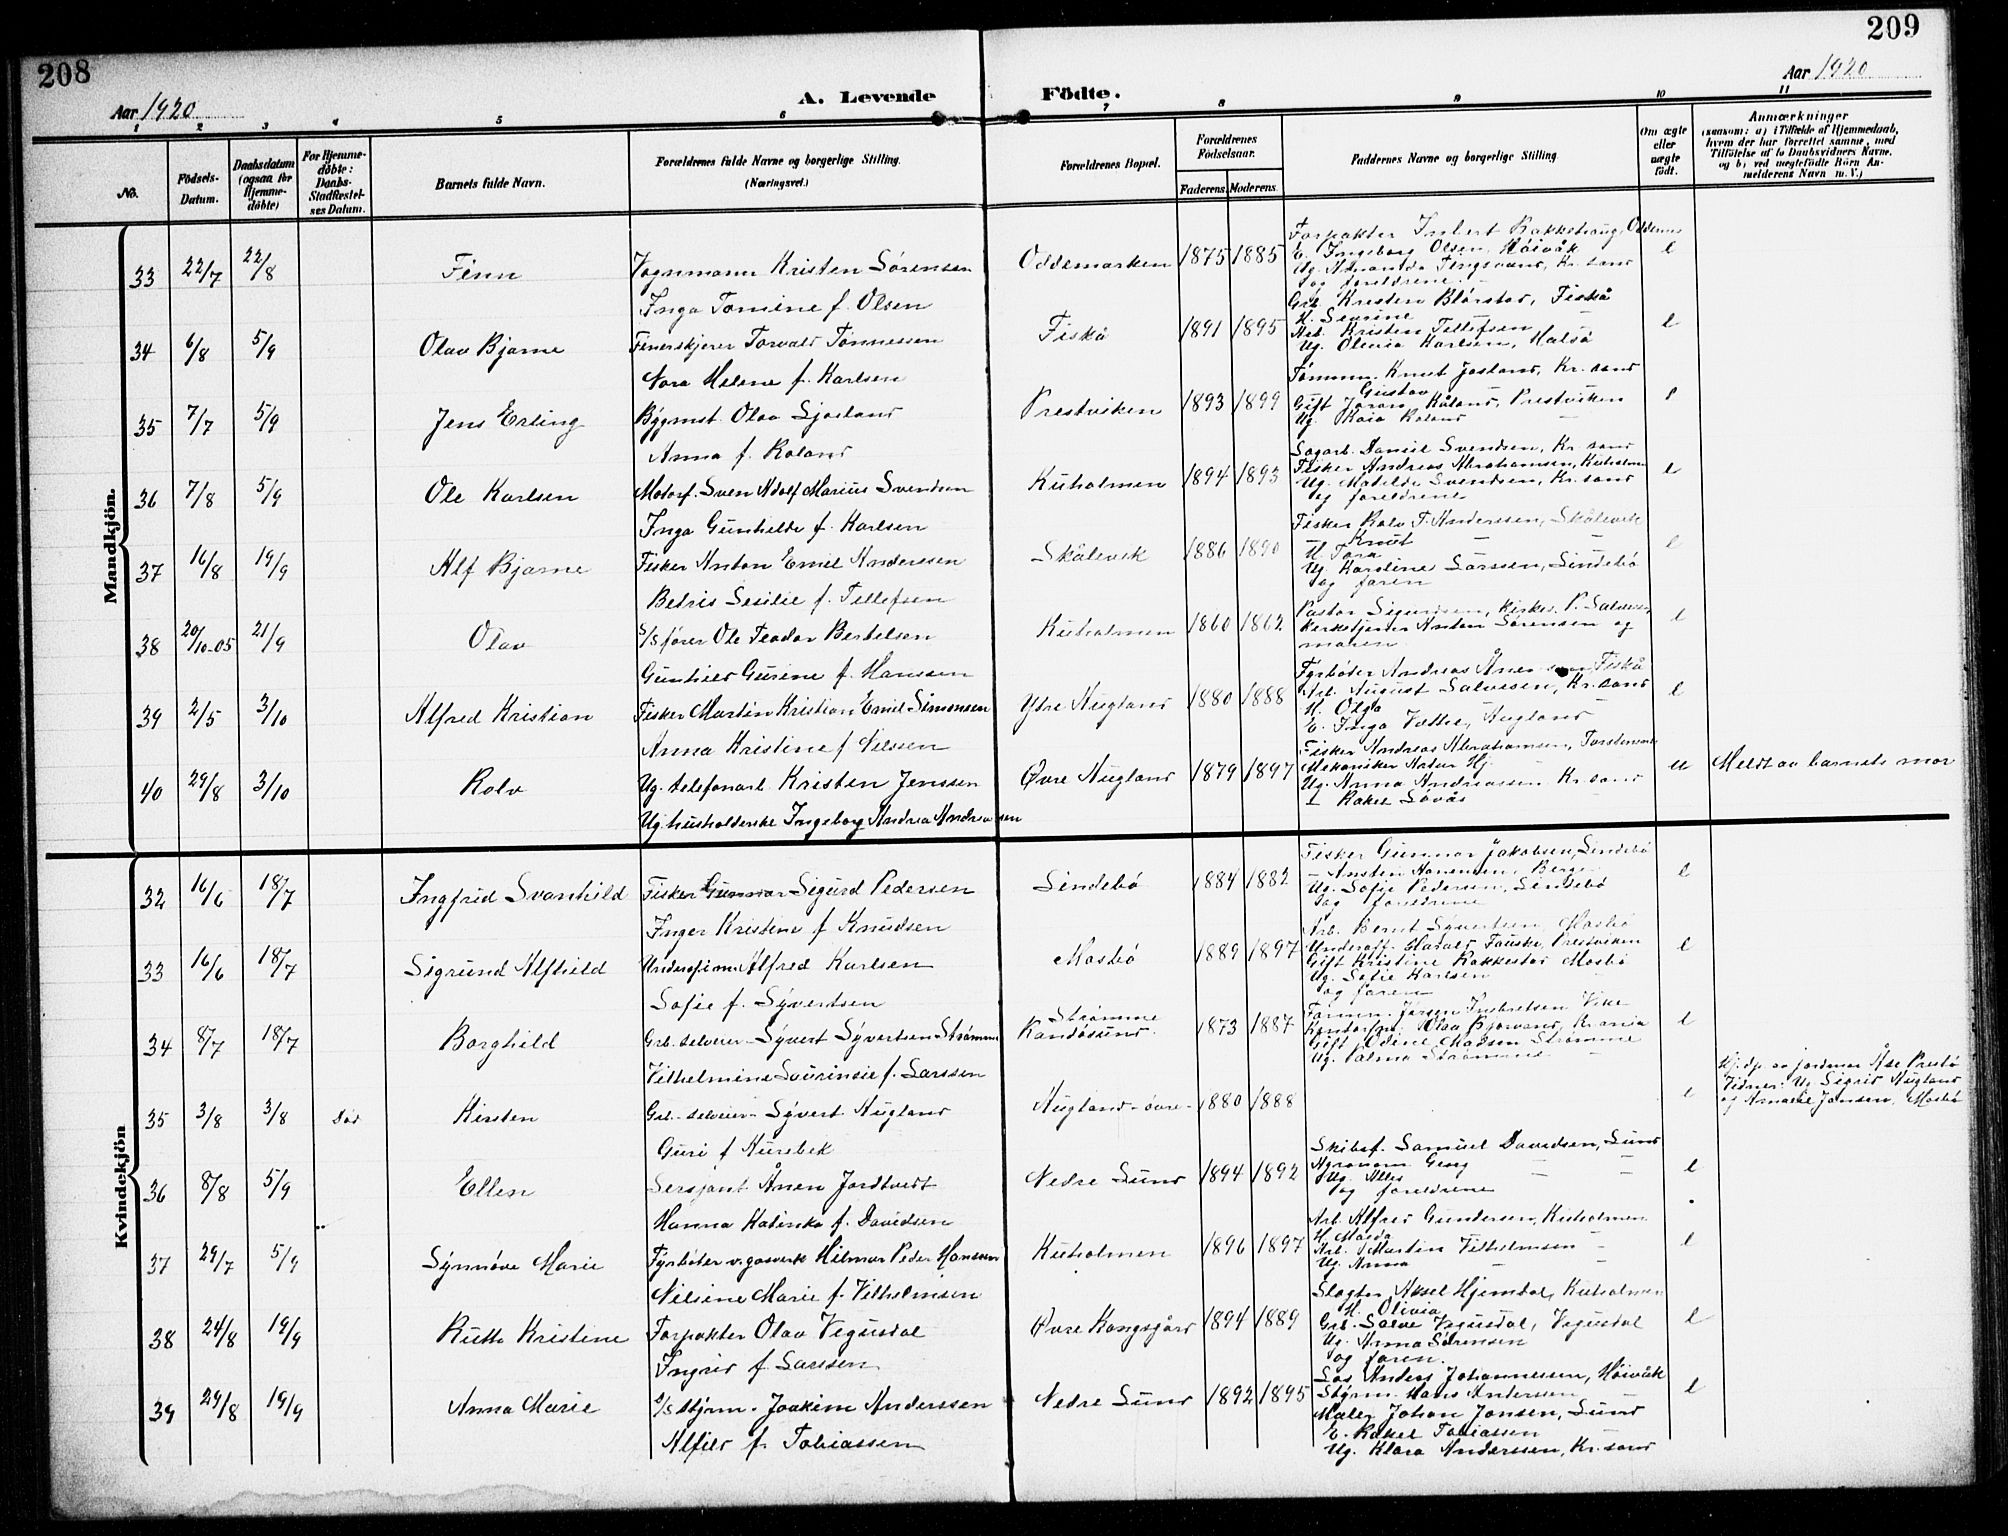 208
209
Aar 1920
A. Levende Födte.
Aar 1920
1 2 3 4 5 6 7 8 9 10 11
No.
Födsels-Datum.
Daabsdatum (ogsaa for Hjemmedöbte)
For Hjemmedöbte: Daabs-Stadfæstelses Datum.
Barnets fulde Navn.
Forældrenes fulde Navne og borgerlige Stilling.
(Næringsvei.)
Forældrenes Bopæl.
Forældrenes Födselsaar.
Faderens. Moderens.
Faddernes Navne og borgerlige Stilling
Om ægte eller uægte födt.
Anmærkninger
(saasom: a) i Tilfælde af Hjemmedaab, hvem der har forrettet samme, med Tilföielse af to Daabsvidners Navne, og b) ved uægtefödte Börn Anmelderens Navn m. V.)
Mandkjön.
33 22/7 22/8 Finn
Vognmann Kristen Sørensen
Inga Tomine f. Olsen
Oddemarken 1875 1885
Forpakter Inbert Rakkehaug, Oddernes
E. Ingeborg Olsen, Høivåk
Ug. Amanda Tingsvand, Kr.sand
og foreldrene.
e
34 6/8 5/9 Olav Bjarne
Finerskjerer Torvald Tønnessen
Nora Helene f. Karlsen
Fiskå 1891 1895
Grb. Kristen Blørstad, Fiskå
H. Severine —
Arb. Kristen Tellefsen —
Ug. Olivia Karlsen, Halså
e
35 7/7 5/9 Jens Erling
Bygmst. Olav Sjøeland
Anna f. Roland
Prestviken 1893 1899
Tømmm. Knut Josland, Kr.sand
Gustav
Gift Joron Håland, Prestviken
Ug. Kaia Roland —
e
36 7/8 5/9 Ole Karlsen
Motorf. Sven Adolf Marius Svendsen
Inga Gunhilde f. Karlsen
Kuholmen 1894 1893
Sagarb. Daniel Svendsen, Kr.sand
Fisker Andreas Abrahamsen, Kuholmen
Ug. Matilde Svendsen, Kr.sand
og foreldrene
e
37 16/8 19/9 Alf Bjarne
Fisker Anton Emil Anderssen
Betris Sesilie f. Tellefsen
Skålevik 1886 1890
Fisker Rolv T. Anderssen, Skålevik
Knut — —
H. Tora
Ug. Karoline Larssen, Lindebø
og faren
e
38 20/10-05 21/9 Olav
S/S fører Ole Teodor Bertelsen
Gunhild Gurine f. Hanssen
Kuholmen 1860 1862
Pastor Sigurdsen, kirkes. P. Salvesen,
kirketjener Anton Sørensen og
moren
e
39 2/5 3/10 Alfred Kristian
Fisker Martin Kristian Emil Simonsen
Anna Kristine f. Nilssen
Ytre Augland 1880 1888
Fyrbøter Andreas Ånensen, Fiskå
Arb. August Salvesen, Kr.sand
H. Olga —
E. Inga Vatne, Augland
e
40 29/8 3/10 Rolv
Ug. telefonarb. Kristen Jenssen
Ug. husholderske Ingeborg Andrea Andreassen
Øvre Augland 1879 1897
Fisker Andreas Abrahamsen,
Mekaniker Artur Hj.
Ug. Anna Andreassen Kr.sand
" Rakel Søvås
u
Meldt av barnets mor
Kvindekjön
32 16/6 18/7 Ingfrid Svanhild
Fisker Gunnar Sigurd Pedersen
Inger Kristine f. Knudsen
Lindebø 1884 1882
Fisker Gunnar Jakobsen, Lindebø
— Ansten Hanensen, Berge
Ug. Sofie Pedersen, Lindebø
og foreldrene
e
33 16/6 18/7 Sigrund Alfhild
Underofficer Alfred Karlsen
Sofie f. Syvertsen
Mosbø 1889 1897
Arb. Bernt Syvertsen, Mosbø
Underoff. Harald Fauske, Prestviken
Gift Kristine Rakkestad Mosbø
Ug. Sofie Karlsen
og faren
e
34 8/7 18/7 Borghild
Grb. selveier Syvert Syvertsen Strømme
Vilhelmine Laurinsie f. Larssen
Strømme
Randøsund. 1873 1887
Tømm. Jørgen Inbretsen Vike
Kontorfm. Olav Bjorvand, Kr.ania
Gift Odine Madsen Strømme
Ug. Palma Strømme —
e
35 3/8 3/8 død Kirsten
Grb. selveier Syvert Augland
Guri f. Aurebek
Augland øvre 1880 1888
e
Hj.dp. av jordmor Åse Prestø
Vidner: Ug. Sigrid Augland
og Amalie Jansen, Mosbø
36 8/8 5/9 Ellen
Sersjant Ånen Jordtveit
Hanna Katinka f. Davidsen
Nedre Lund 1894 1892
Skibsf. Samuel Davidsen, Lund
Agronom Georg — —
Ug. Alis — —
og foreldrene
e
37 29/7 5/9 Synnøve Marie
Fyrbøter v. gasverk Hilmar Peder Hansen
Nilsine Marie f. Vilhelmsen
Kuholmen 1896 1897
Arb. Alfred Gundersen, Kuholmen
H. Magda
Arb. Martin Vilhelmsen —
Ug. Anna —
e
38 24/8 19/9 Ruth Kristine
Forpakter Olav Vegusdal
Ingrid f. Larssen
Øvre Kongsgård 1894 1889
Slagter Aksel Hjemdal, Kuholmen
H. Olivia
Grb. Salve Vegusdal, Vegusdal
Ug. Anna Sørensen
og faren.
e
39 29/8 19/9 Anna Marie
S/S styrm. Joakim Anderssen
Alfild f. Tobiassen
Nedre Lund 1892 1895
Los Anders Johannessen, Høivåk
Styrm. Hans Andersen —
Maler Johan Jansen, Lund
E. Rakel Tobiassen
Ug. Klara Anderssen, Kr.sand
e